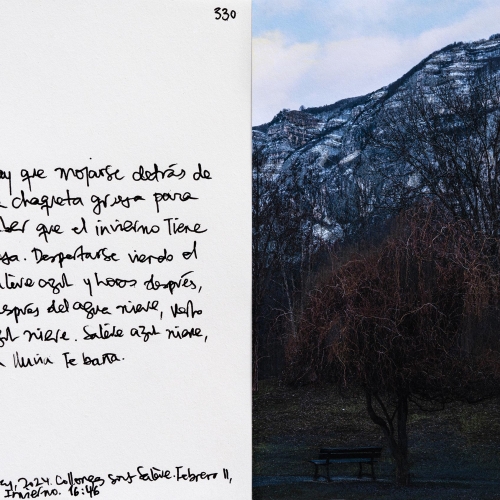 330
ay que mojarse detrás de
a chaqueta gruesa para
ber que el invierno tiene
sa. Despertarse viendo el
alève azul y horas después,
espués del agua nieve, verlo
zul nieve. Salève azul nieve,
a lluvia te baña.
ey, 2024. Collonges sous Salève. Febrero 11,
Invierno. 16:46